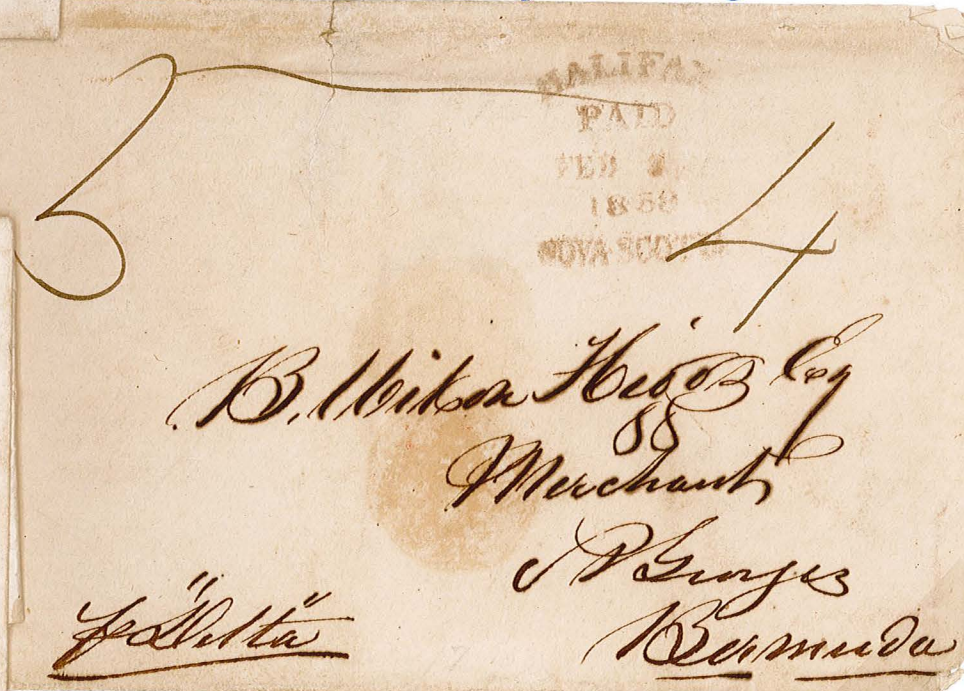 5
HALIFAX
PAID
FEB
1858
NOVA SCOTIA
4
B. Wilson Higgs Esq
Merchant
St Georges
Bermuda
p "Delta"